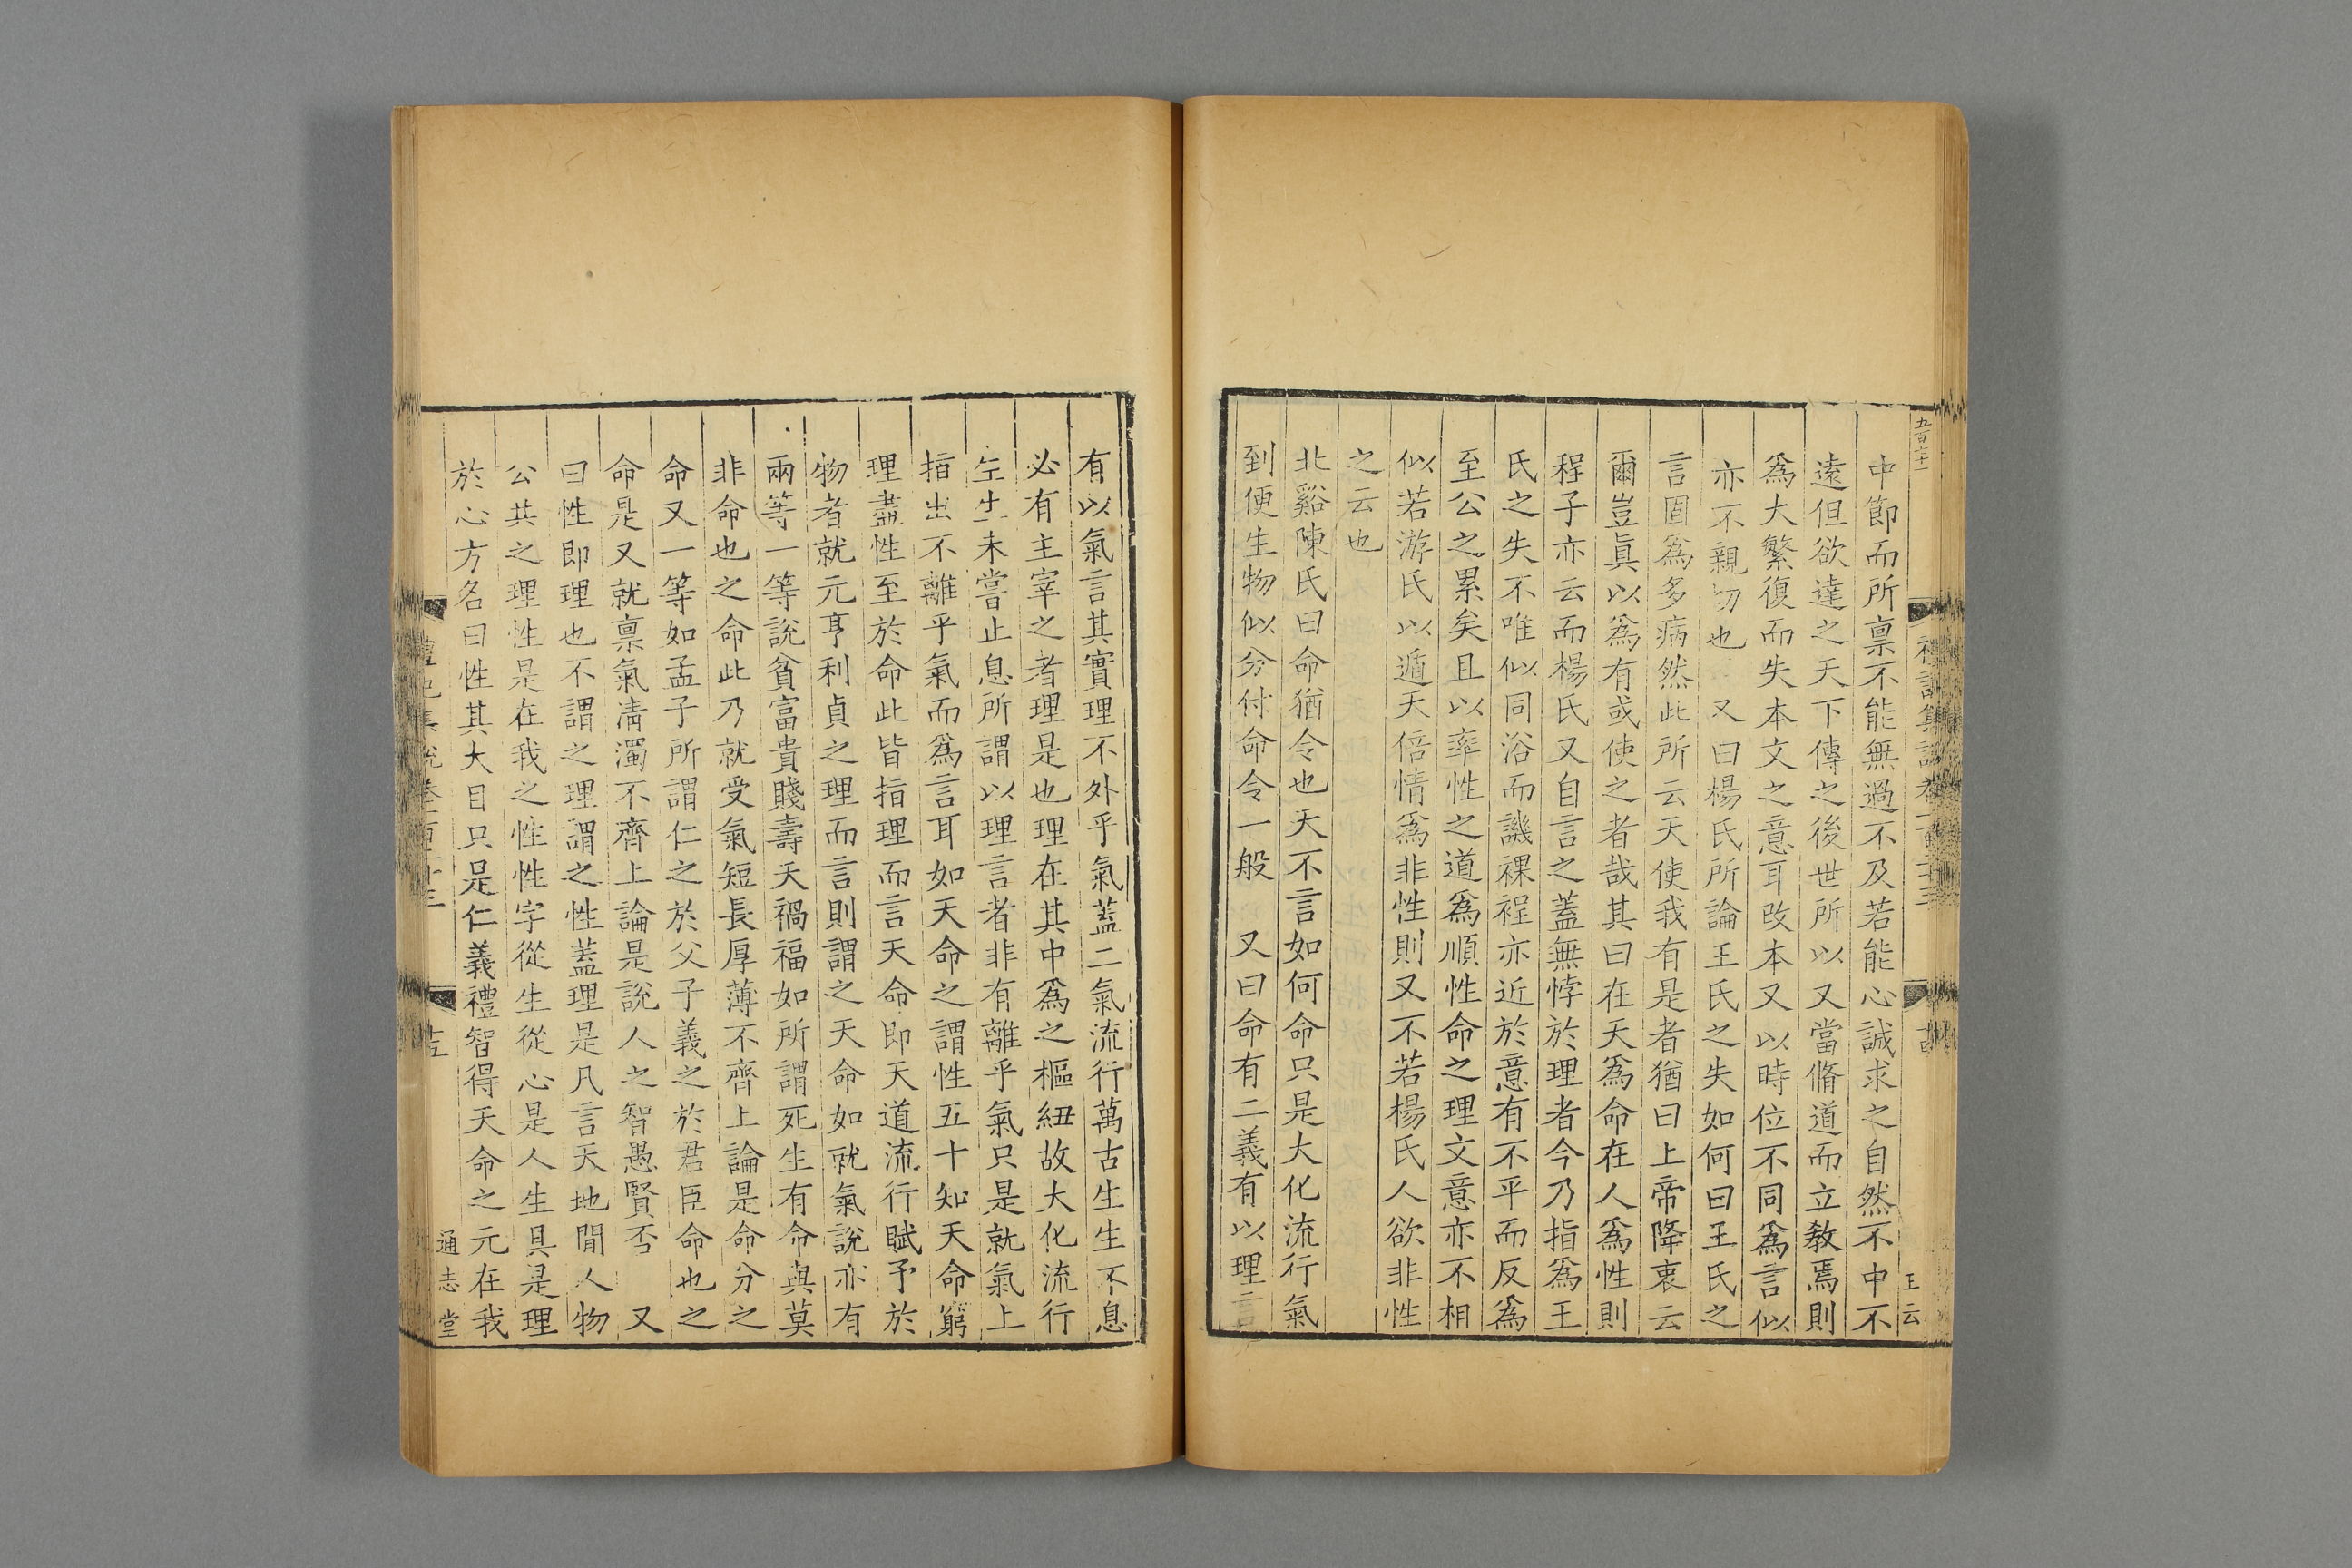 五百六十
中節而所稟不能無過不及若能心誠求之自然不中不
遠但欲達之天下傳之後世所以又當脩道而立教焉則
爲大繁復而失本文之意耳改本又以時位不同爲言似
亦不親切也　又曰楊氏所論王氏之失如何曰王氏之
言固爲多病然此所云天使我有是者猶曰上帝降衷云
爾豈眞以爲有或使之者哉其曰在天爲命在人爲性則
程子亦云而楊氏又自言之蓋無悖於理者今乃指爲王
氏之失不唯似同浴而譏裸裎亦近於意有不平而反爲
至公之累矣且以率性之道爲順性命之理文意亦不相
似若游氏以遁天倍情爲非性則又不若楊氏人欲非性
之云也
北谿陳氏曰命猶令也天不言如何命只是大化流行氣
到便生物似分付命令一般　又曰命有二義有以理言
王云
有以氣言其實理不外乎氣蓋二氣流行萬古生生不息
必有主宰之者理是也理在其中爲之樞紐故大化流行
生生未嘗止息所謂以理言者非有離乎氣只是就氣上
指出不離乎氣而爲言耳如天命之謂性五十知天命窮
理盡性至於命此皆指理而言天命即天道流行賦予於
物者就元亨利貞之理而言則謂之天命如就氣說亦有
兩等一等說貧富貴賤壽夭禍福如所謂死生有命與莫
非命也之命此乃就受氣短長厚薄不齊上論是命分之
命又一等如孟子所謂仁之於父子義之於君臣命也之
命是又就稟氣清濁不齊上論是說人之智愚賢否　又
曰性即理也不謂之理謂之性蓋理是凡言天地間人物
公共之理性是在我之性性字從生從心是人生具是理
於心方名曰性其大目只是仁義禮智得天命之元在我
禮記集說卷一百二十三
十五
通志堂